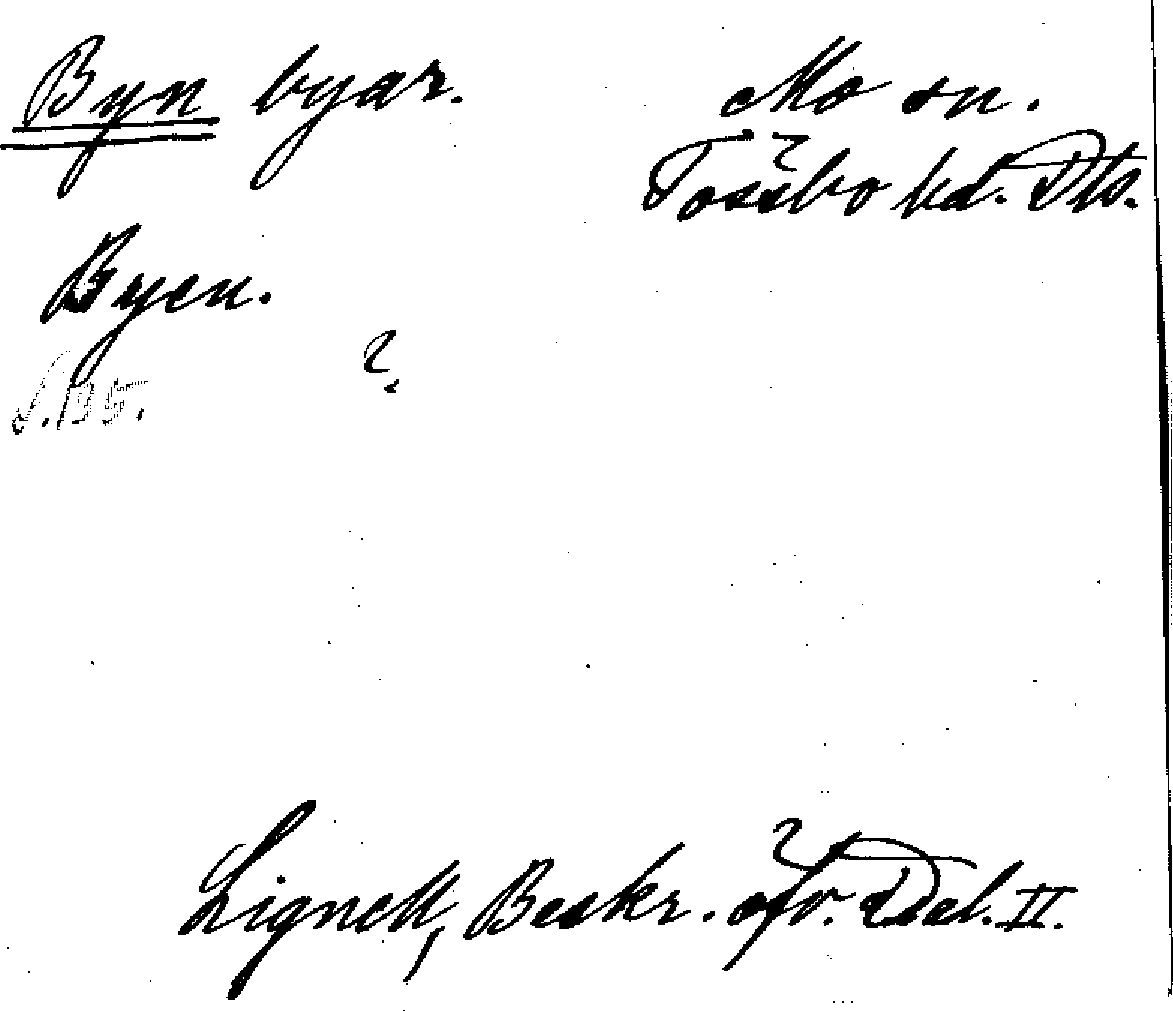 Byn byar. Mo sn.
Tössbo hd. Dls.
Byen.
S. 195.
?
Lignell, Beskr. öfv. Dal. II.